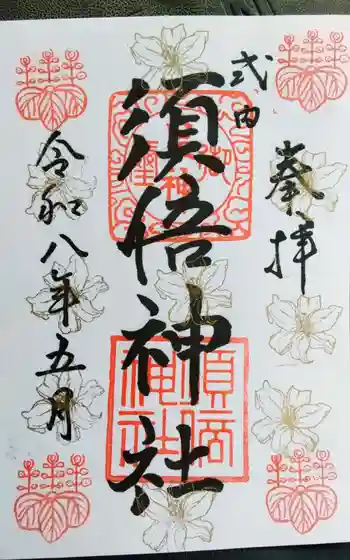 奉拝
式内
須倍神社
令和八年五月